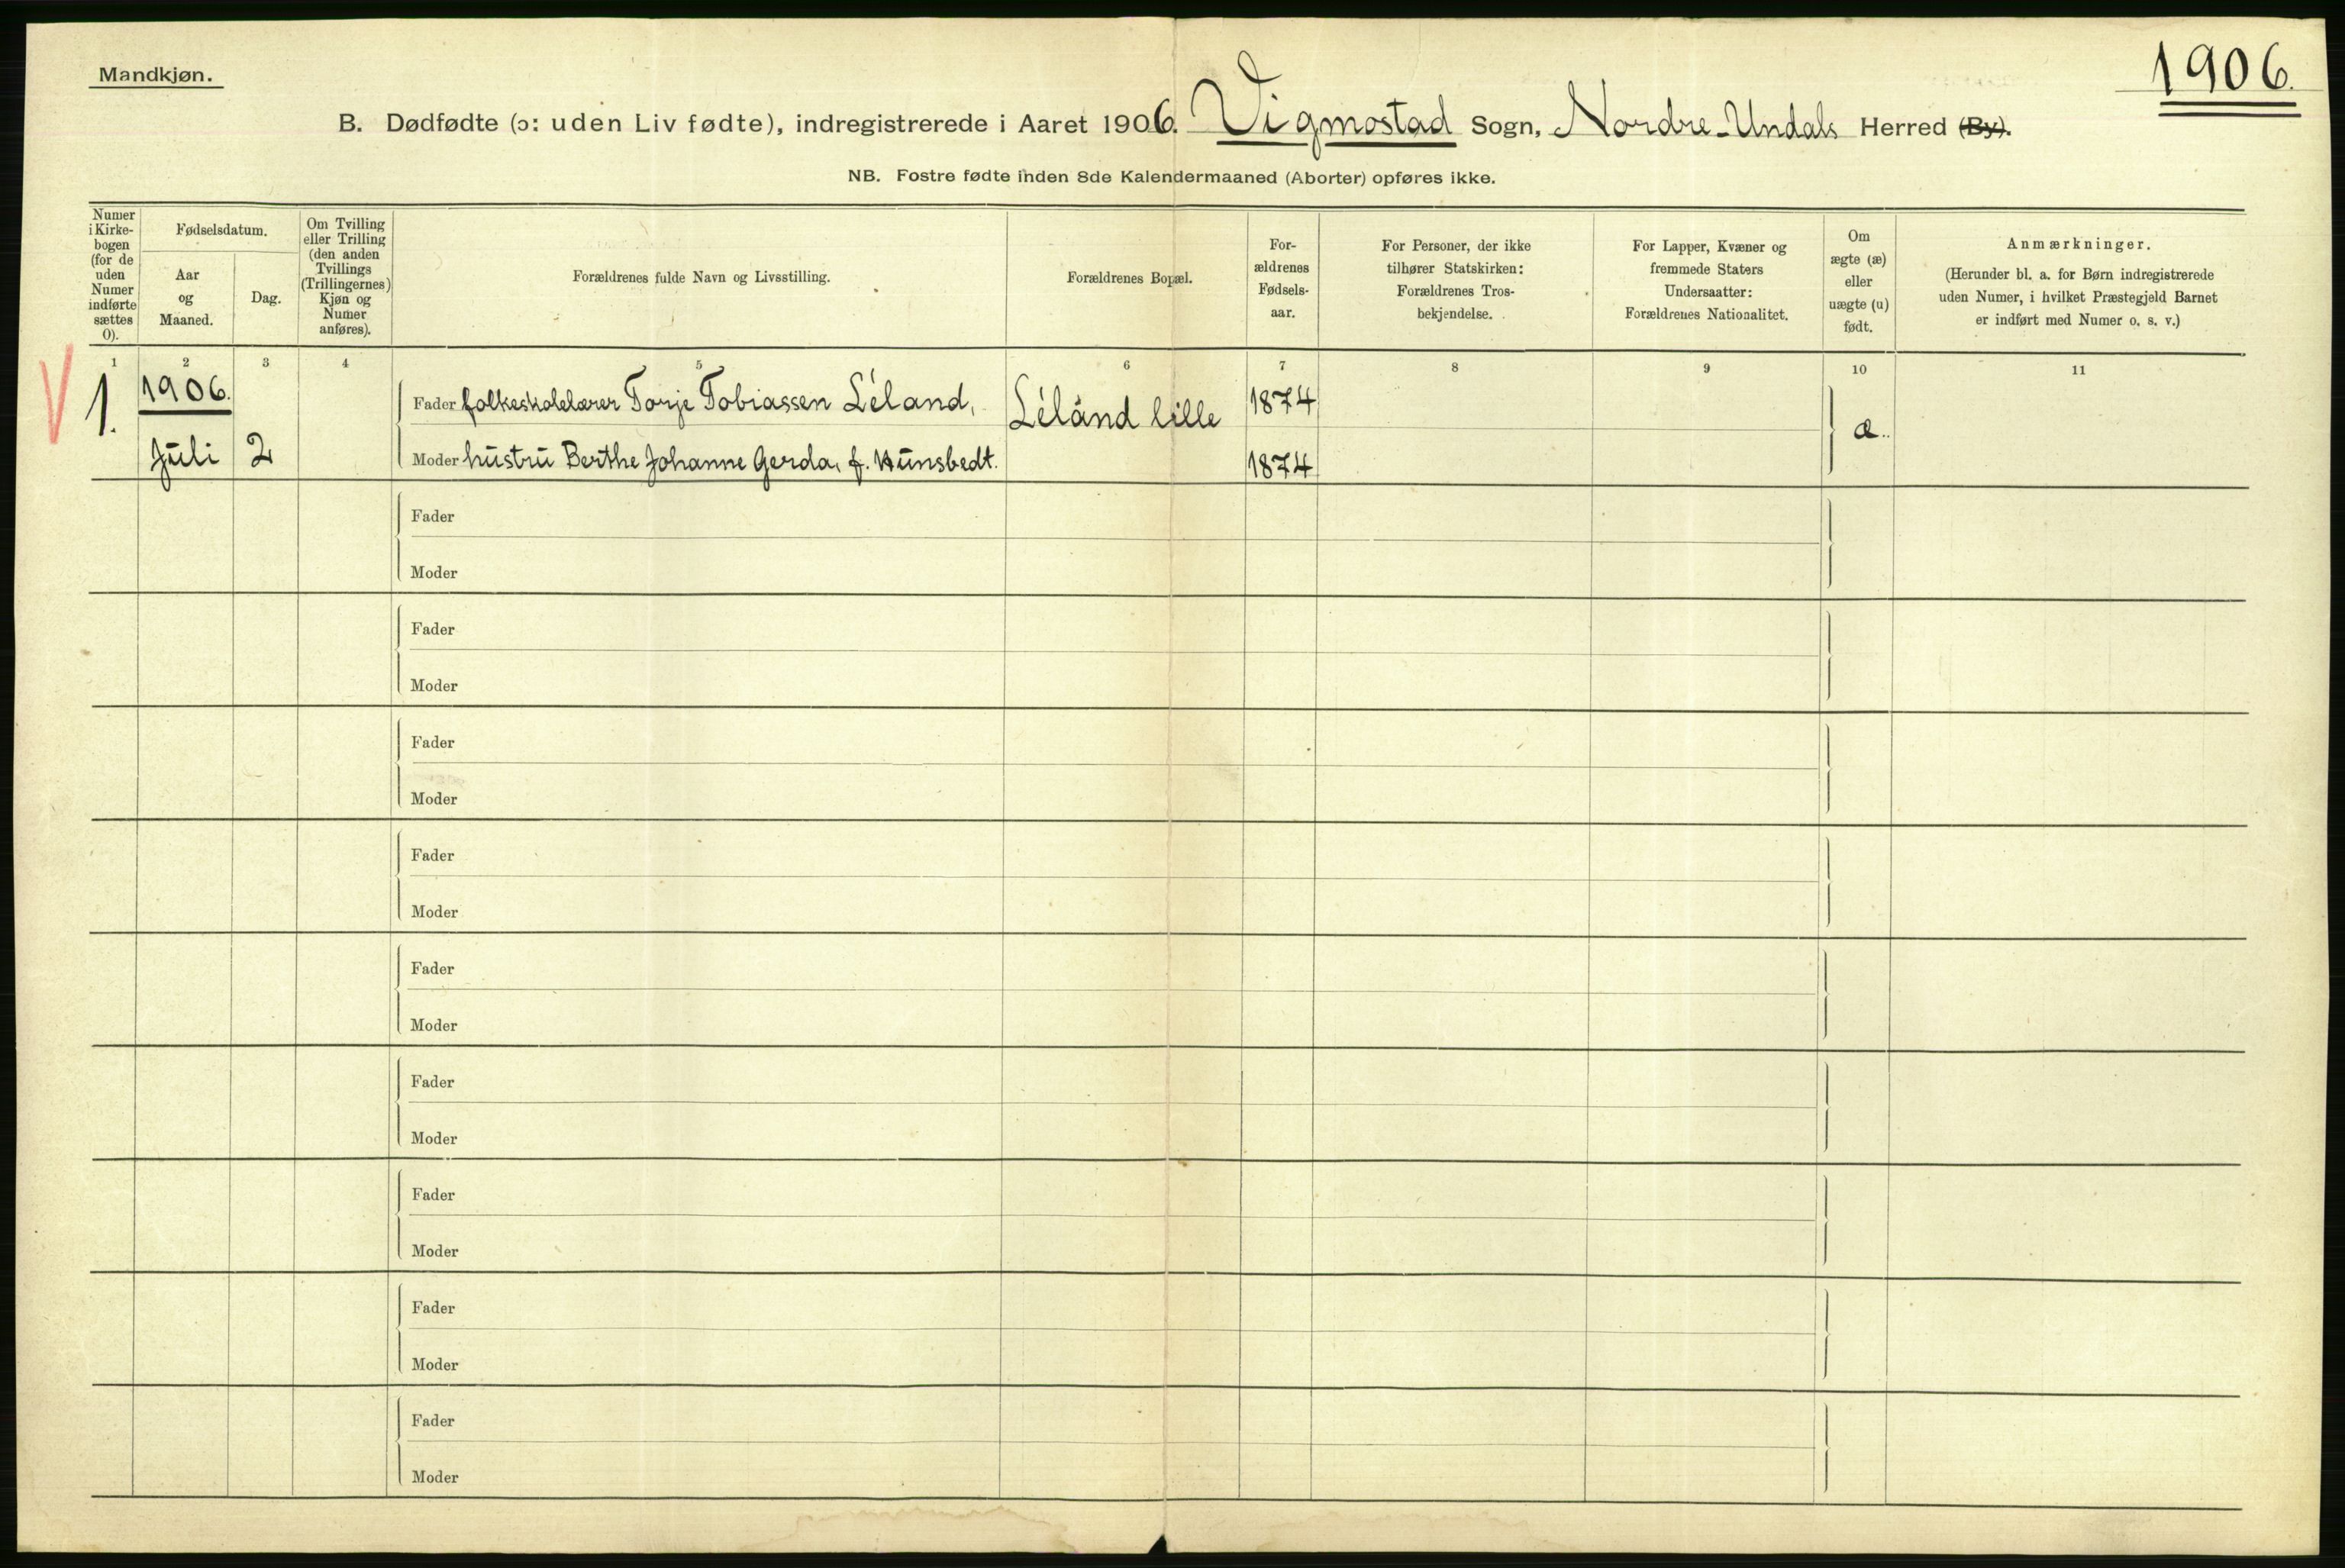 Mandkjøn.
1906.
B. Dødfødte (ɔ: uden Liv fødte), indregistrerede i Aaret 1906. Vigmostad Sogn, Nordre-Undals Herred (By).
NB. Fostre fødte inden 8de Kalendermaaned (Aborter) opføres ikke.
Numer
i Kirke-
bogen
(for de
uden
Numer
indførte
sættes
0).
Fødselsdatum.
Aar
og
Maaned.
Dag.
Om Tvilling
eller Trilling
(den anden
Tvillings
(Trillingernes)
Kjøn og
Numer
anføres).
Forældrenes fulde Navn og Livsstilling.
Forældrenes Bopæl.
For-
ældrenes
Fødsels-
aar.
For Personer, der ikke
tilhører Statskirken:
Forældrenes Tros-
bekjendelse.
For Lapper, Kvæner og
fremmede Staters
Undersaatter:
Forældrenes Nationalitet.
Om
ægte (æ)
eller
uægte (u)
født.
Anmærkninger.
(Herunder bl. a. for Børn indregistrerede
uden Numer, i hvilket Præstegjeld Barnet
er indført med Numer o. s. v.)
1 2 3 4 5 6 7 8 9 10 11
V 1. 1906.
Juli 2
Fader folkeskolelærer Torje Tobiassen Léland,
Moder hustru Berthe Johanne Gerda, f. Hunsbedt.
Léland lille
1874
1874
æ.
Fader
Moder
Fader
Moder
Fader
Moder
Fader
Moder
Fader
Moder
Fader
Moder
Fader
Moder
Fader
Moder
Fader
Moder